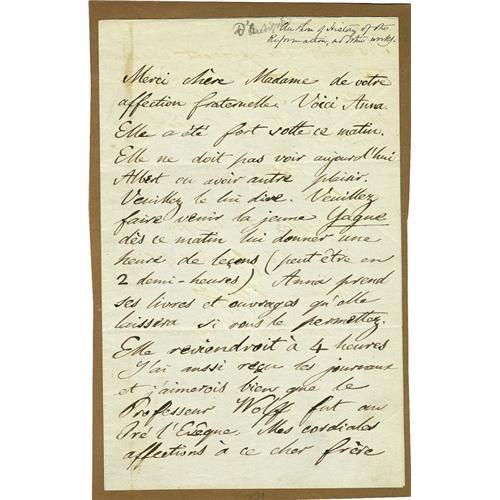 D'Aubigné
Author of History of the
Reformation, and other works.
Merci chère Madame de votre
affection fraternelle. Voici Anna.
Elle a été fort sotte ce matin.
Elle ne doit pas voir aujourd'hui
Albert ou avoir autre plaisir.
Veuillez le lui dire. Veuillez
faire venir la jeune Yaque
dès ce matin lui donner une
heure de leçons (peut être en
2 demi-heures) Anna prend
ses livres et ouvrages qu'elle
laissera si vous le permettez.
Elle reviendroit à 4 heures
J'ai aussi reçu les journaux
et j'aimerois bien que le
Professeur Wolff fut au
Pré l'Evêque. Mes cordiales
affections à ce cher frère